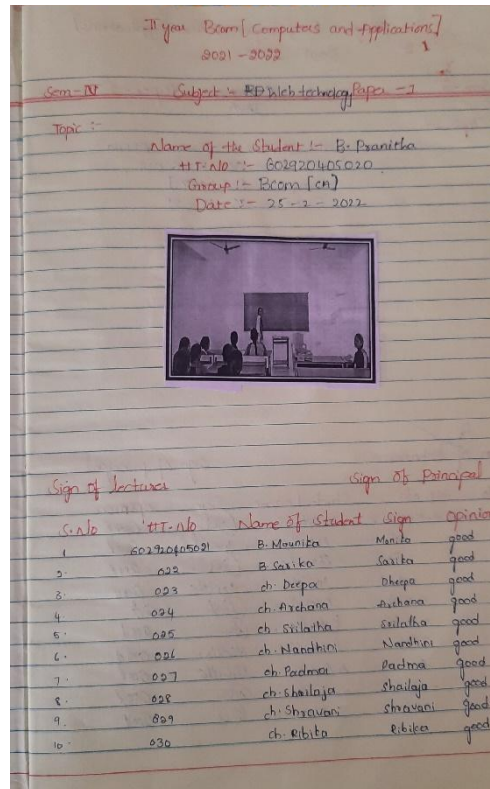 II year Bcom [Computers and Applications]
2021-2022
Sem-IV Subject :- Web technology Paper - I
Topic :-
Name of the Student :- B. Pranitha
HT.No :- 602920405020
Group :- Bcom [ca]
Date :- 25-2-2022
Sign of lecturer Sign of Principal
S.No HT.No Name of Student Sign Opinion
1 602920405021 B. Mounika Monika good
2. 022 B. Sarika Sarika good
3. 023 ch. Deepa Dheepa good
4 024 ch. Archana Archana good
5. 025 ch. Srilatha Srilatha good
6. 026 ch. Nandhini Nandhini good
7. 027 ch. Padma Padma good
8. 028 ch. Shailaja Shailaja good
9. 029 ch. Shravani Shravani good
10 030 ch. Ribika Ribika good